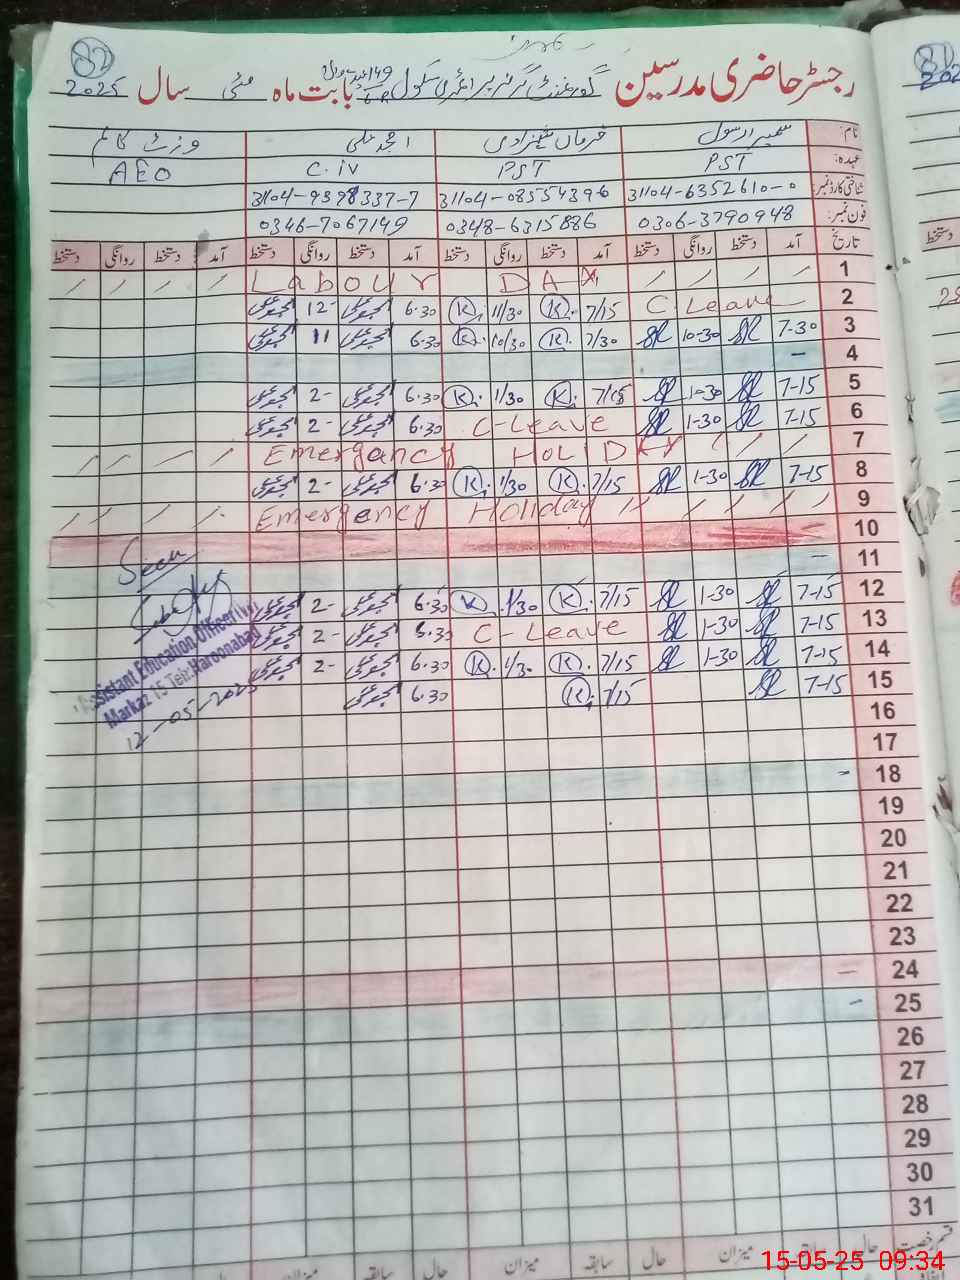 82
81
رجسٹر حاضری مدرسین گورنمنٹ گرلز پرائمری سکول 149 بابت ماہ مئی سال 2025
نام: سمیرا رسول فرمان شہزادی امجد علی وزٹ کالم
عہدہ: PST PST C.iv AEO
شناختی کارڈ نمبر: 31104-6352610-0 31104-0855439-6 31104-9398337-7
فون نمبر: 0306-3790948 0348-6315886 0346-7067149
تاریخ آمد دستخط روانگی دستخط آمد دستخط روانگی دستخط آمد دستخط روانگی دستخط آمد دستخط روانگی دستخط
1 Labour DAY
2 C-Leave 7/15 K. 11/30 K. 6.30 12-
3 7-30 SR 10-30 SR 7/30 K. 10/30 K. 6.30 11
4 -
5 7-15 SR 1-30 SR 7/15 K. 1/30 K. 6.30 2-
6 7-15 SR 1-30 SR C-Leave 6.30 2-
7 Emergancy HOLIDAY
8 7-15 SR 1-30 SR 7/15 K. 1/30 K. 6.30 2-
9 Emergency Holiday
10
11 -
12 7-15 SR 1-30 SR 7/15 K. 1/30 K 6.30 2-
13 7-15 SR 1-30 SR C-Leave 6.30 2-
14 7-15 SR 1-30 SR 7/15 K. 1/30 K. 6.30 2-
15 7-15 SR 7/15 K. 6.30
16
17
18 -
19
20
21
22
23
24 -
25 -
26
27
28
29
30
31
Seen
Assistant Education Officer
Markaz 15 Teh: Haroonabad
12-05-2025
قسم رخصت حال سابقہ میزان حال سابقہ میزان حال سابقہ میزان حال
15-05-25 09:34